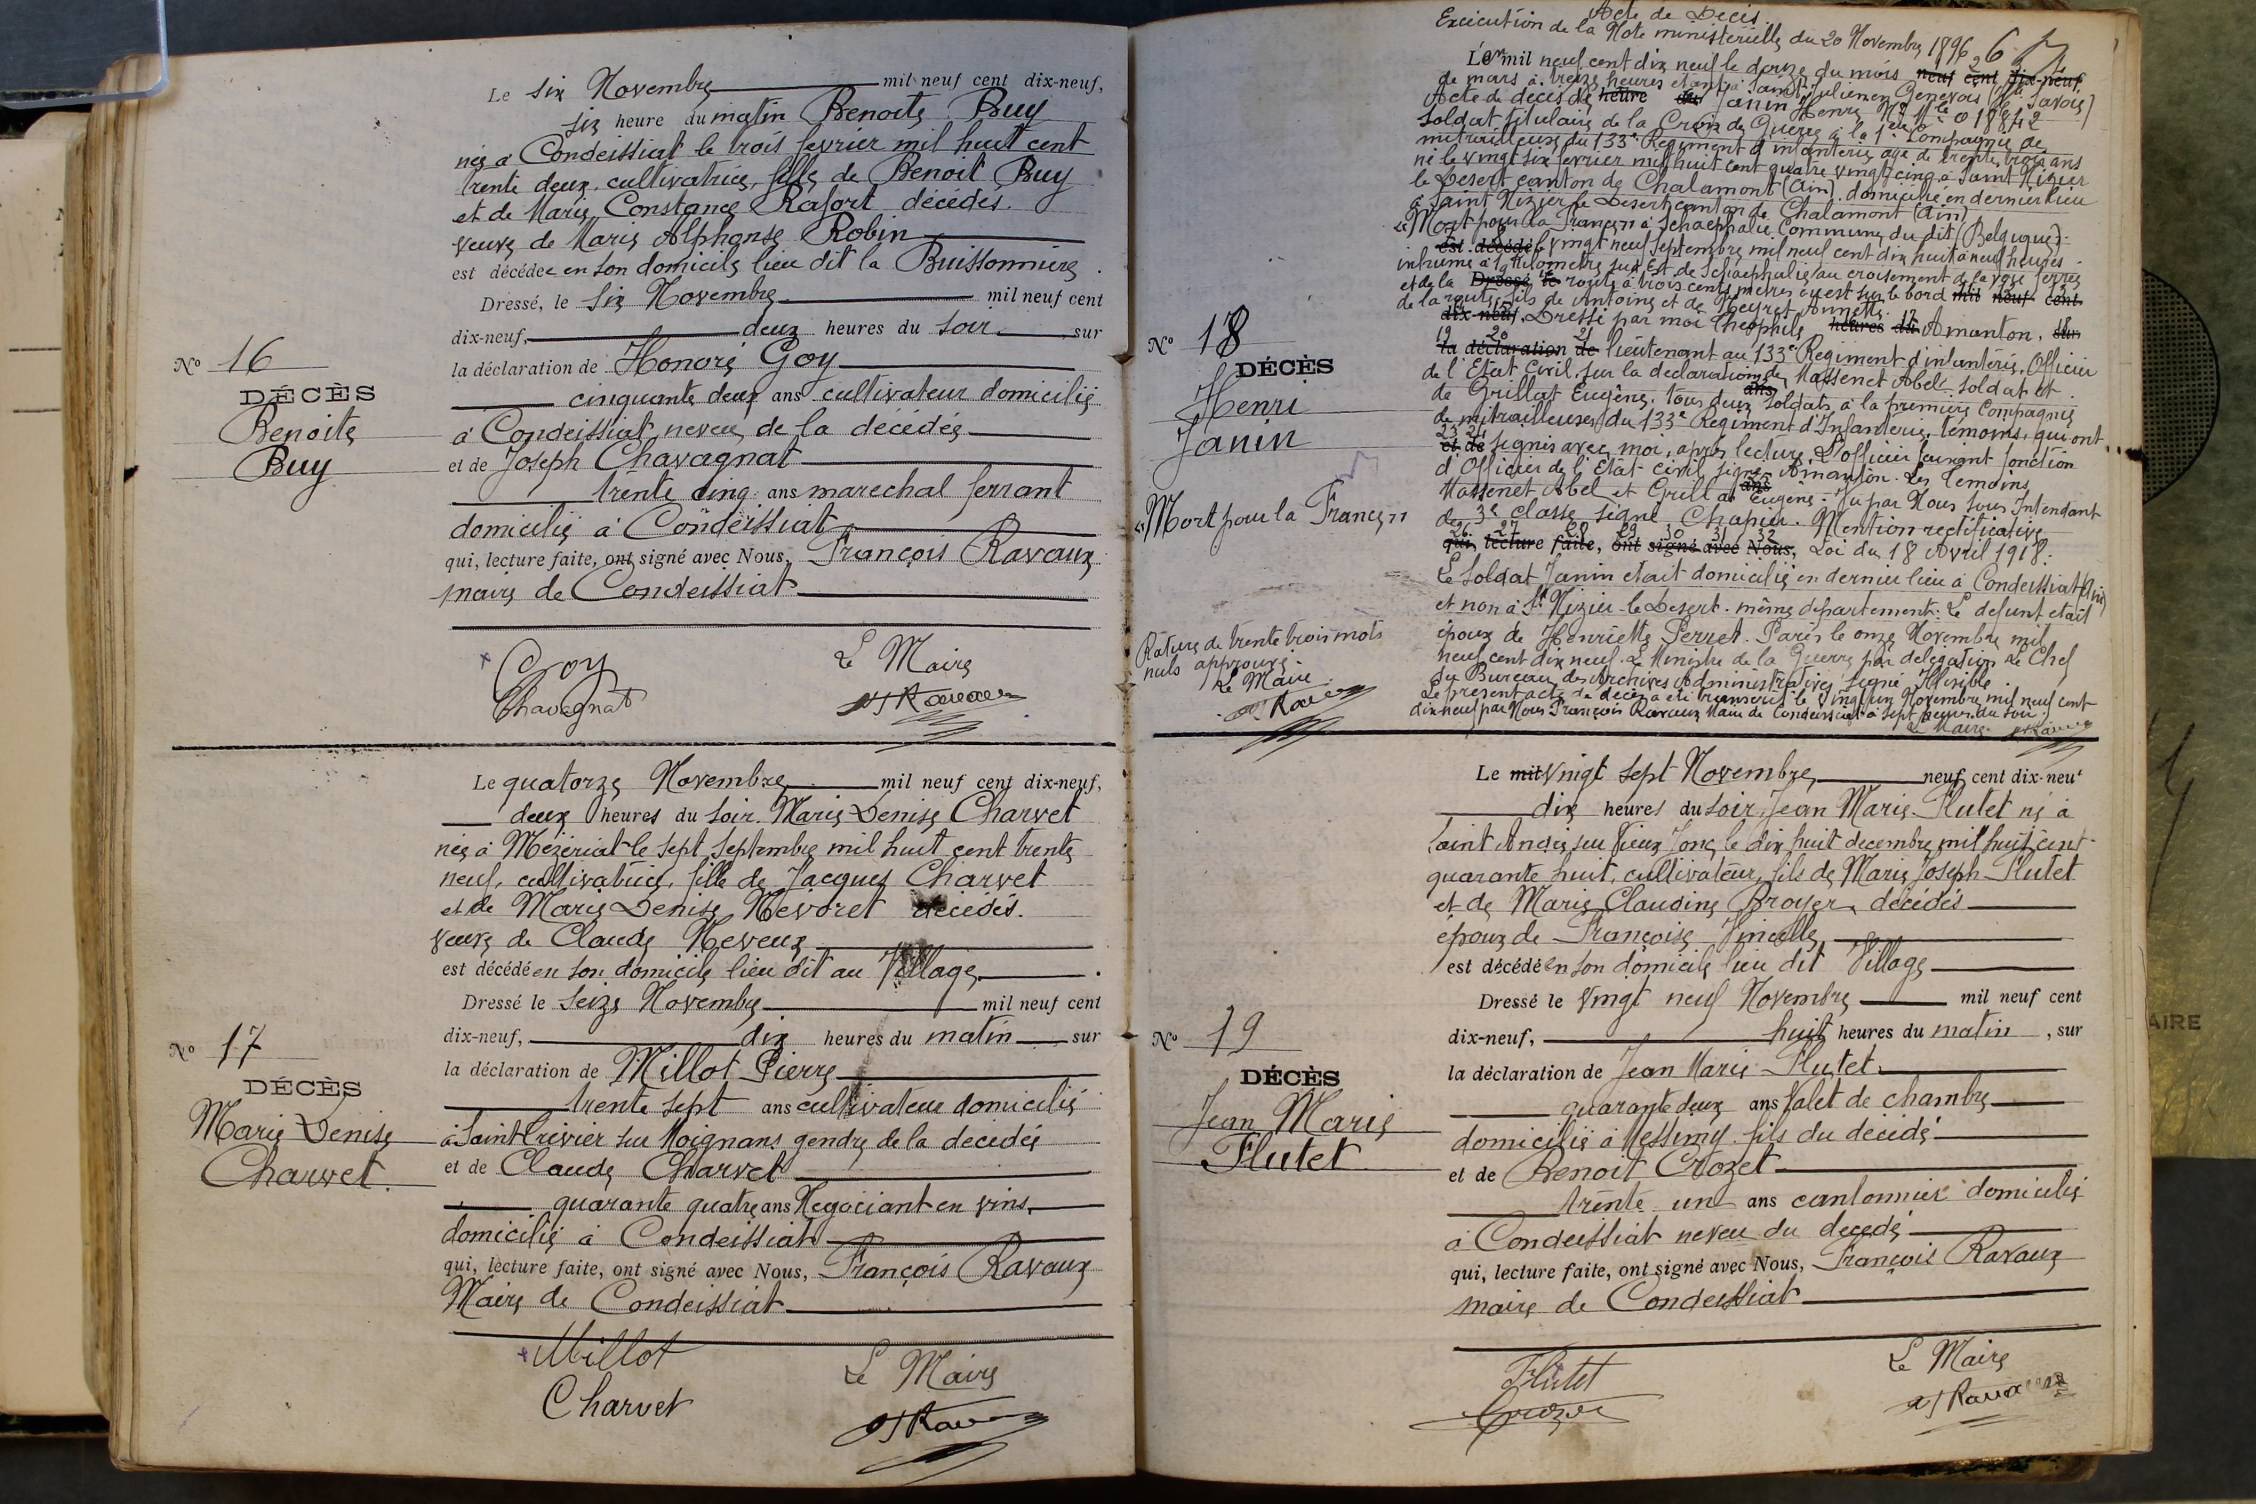 Le six Novembre mil neuf cent dix-neuf,
six heure du matin Benoite Buy
née à Condeissiat le trois fevrier mil huit cent
trente deux, cultivatrice, fille de Benoit Buy
et de Marie Constance Rafort décédés.
veuve de Marie Alphonse Robin
est décédée en son domicile lieu dit la Buissonnière.
Dressé, le six Novembre mil neuf cent
dix-neuf, deux heures du soir, sur
No 16
la déclaration de Honoré Goy
DÉCÈS
cinquante deux ans cultivateur domicilié
Benoite
à Condeissiat neveu de la décédée
Buy
et de Joseph Chavagnat
trente cinq ans marechal ferrant
domicilié à Condeissiat
qui, lecture faite, ont signé avec Nous, François Ravaux
maire de Condeissiat
Goy
Le Maire
Chavagnat
Ravaux
Le quatorze Novembre mil neuf cent dix-neuf,
deux heures du soir Marie Denise Charvet
née à Mézériat le sept Septembre mil huit cent trente
neuf, cultivatrice, fille de Jacques Charvet
et de Marie Denise Nevoret décédés.
veuve de Claude Neveux
est décédé en son domicile lieu dit au Village.
Dressé le seize Novembre mil neuf cent
dix-neuf, dix heures du matin sur
No 17
la déclaration de Millot Pierre
DÉCÈS
trente sept ans cultivateur domicilié
Marie Denise
à Saint Trivier sur Moignans gendre de la decedée
Charvet.
et de Claude Charvet
quarante quatre ans Negociant en vins,
domicilié à Condeissiat
qui, lecture faite, ont signé avec Nous, François Ravaux
Maire de Condeissiat
Millot
Le Maire
Charvet
Ravaux
Acte de Décès
Execution de la Note ministerielle du 20 Novembre 1896
L'an mil neuf cent dix neuf le douze du mois neuf cent dix-neuf.
de mars à treize heures etant à Saint Julien en Genevois (Hte Savoie)
Acte de décès de heure du Janin Henri No Mle 018842
soldat titulaire de la Croix de Guerre à la 1ere Compagnie de
mitrailleuses du 133e Regiment d'infanterie agé de trente trois ans
né le vingt six fevrier mil huit cent quatre vingt cinq à Saint Nizier
le Desert canton de Chalamont (Ain) domicilié en dernier lieu
à Saint Nizier le Desert canton de Chalamont (Ain)
"Mort pour la France" à Schaephalie Commune du dit (Belgique)
est décédé le vingt neuf septembre mil neuf cent dix huit à neuf heures
inhumé à 1 Kilometre Sud Est de Schaephalie au croisement de la voie ferrée
et de la Dressé, le route à trois cents metres ouest sur le bord mil neuf cent
de la route, fils de Antoine et de Peyret Annette.
dix-neuf, Dressé par moi Theophile heures du Amanton, sur
No 18
la déclaration de lieutenant au 133e Regiment d'infanterie, Officier
DÉCÈS
de l'Etat Civil, sur la declaration de Massenet Abel soldat et
Henri
de Grillat Eugène, tous deux ans soldats à la premiere Compagnie
Janin
de mitrailleuses du 133e Regiment d'Infanterie, temoins, qui ont
et de signé avec moi, après lecture. L'officier faisant fonction
d'Officier de l'Etat civil signé Amanton. Les temoins
Massenet Abel et Grillat ans Eugène. Vu par Nous Sous Intendant
"Mort pour la France"
de 3e classe signé Chapier. Mention rectificative
qui, lecture faite, ont signé avec Nous, Loi du 18 Avril 1918.
Le Soldat Janin etait domicilié en dernier lieu à Condeissiat (Ain)
et non à St Nizier-le-Desert, même departement. Le defunt etait
Rature de trente trois mots
nuls approuvé
Le Maire
Ravaux
époux de Henriette Perret. Paris le onze Novembre mil
neuf cent dix neuf. Le Ministre de la Guerre par delegation Le Chef
du Bureau des Archives Administratives signé Illisible.
Le present acte de décès a été transcrit le vingt un Novembre mil neuf cent
dix-neuf par Nous François Ravaux Maire de Condeissiat à sept heures du soir
Le Maire Ravaux
Le mil vingt sept Novembre neuf cent dix-neuf
dix heures du soir, Jean Marie Flutet né à
Saint André sur Vieux Jonc le dix huit decembre mil huit cent
quarante huit, cultivateur, fils de Marie Joseph Flutet
et de Marie Claudine Broyer décédés
époux de Françoise Vincelle
est décédé en son domicile lieu dit Village
Dressé le vingt neuf Novembre mil neuf cent
dix-neuf, huit heures du matin, sur
No 19
la déclaration de Jean Marie Flutet.
DÉCÈS
quarante deux ans Valet de chambre
Jean Marie
domicilié à Messimy fils du decedé
Flutet
et de Benoit Crozet
trente un ans cantonnier domicilié
à Condeissiat neveu du decedé
qui, lecture faite, ont signé avec Nous, François Ravaux
maire de Condeissiat
Flutet
Le Maire
Crozet
Ravaux